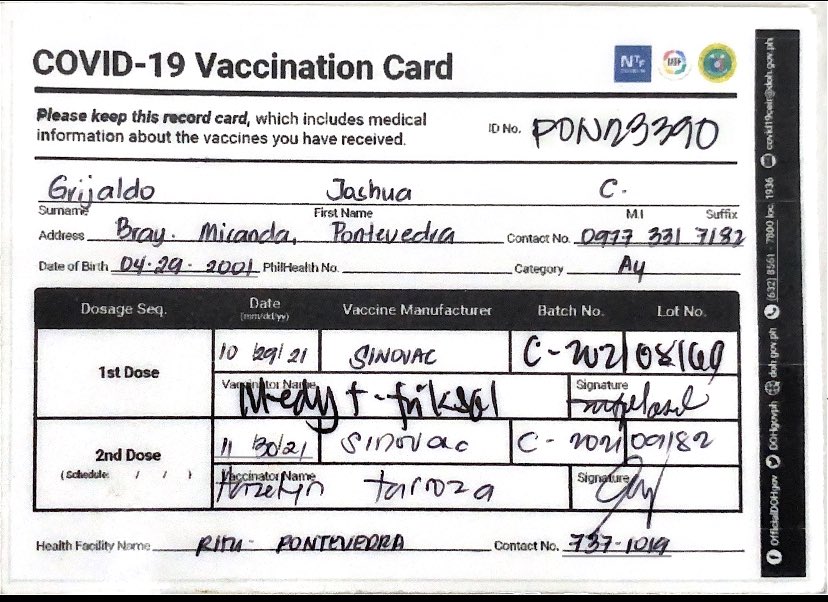 COVID-19 Vaccination Card
Please keep this record card, which includes medical
information about the vaccines you have received.
ID No. PDN23390
Grijaldo Joshua C.
Surname First Name M.I Suffix
Address Brgy. Miranda, Pontevedra Contact No. 0977 331 7182
Date of Birth 04-29-2001 PhilHealth No. Category A4
Dosage Seq. Date (mm/dd/yy) Vaccine Manufacturer Batch No. Lot No.
1st Dose 10/29/21 SINOVAC C-2021 08160
Vaccinator Name Signature
2nd Dose 11/30/21 Sinovac C-2021 09182
(Schedule: / / )
Vaccinator Name tarroza Signature
Health Facility Name PONTEVEDRA Contact No. 737-1019
OfficialDOHgov DOHgovph doh.gov.ph (632) 8651-7800 loc. 1936